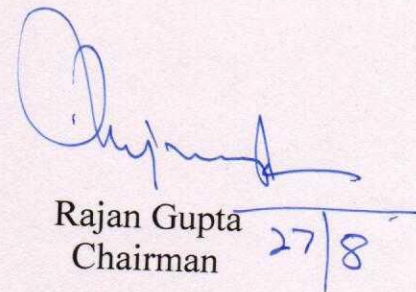 Rajan Gupta
Chairman
27/8